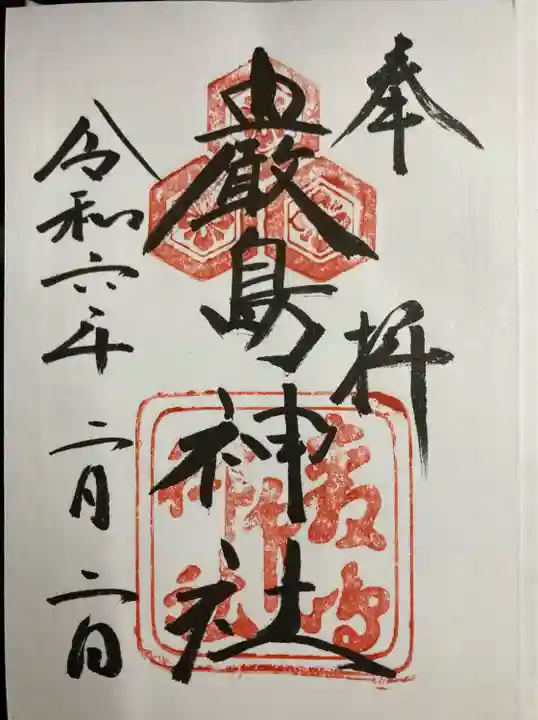 奉拝
嚴島神社
令和六年二月二日